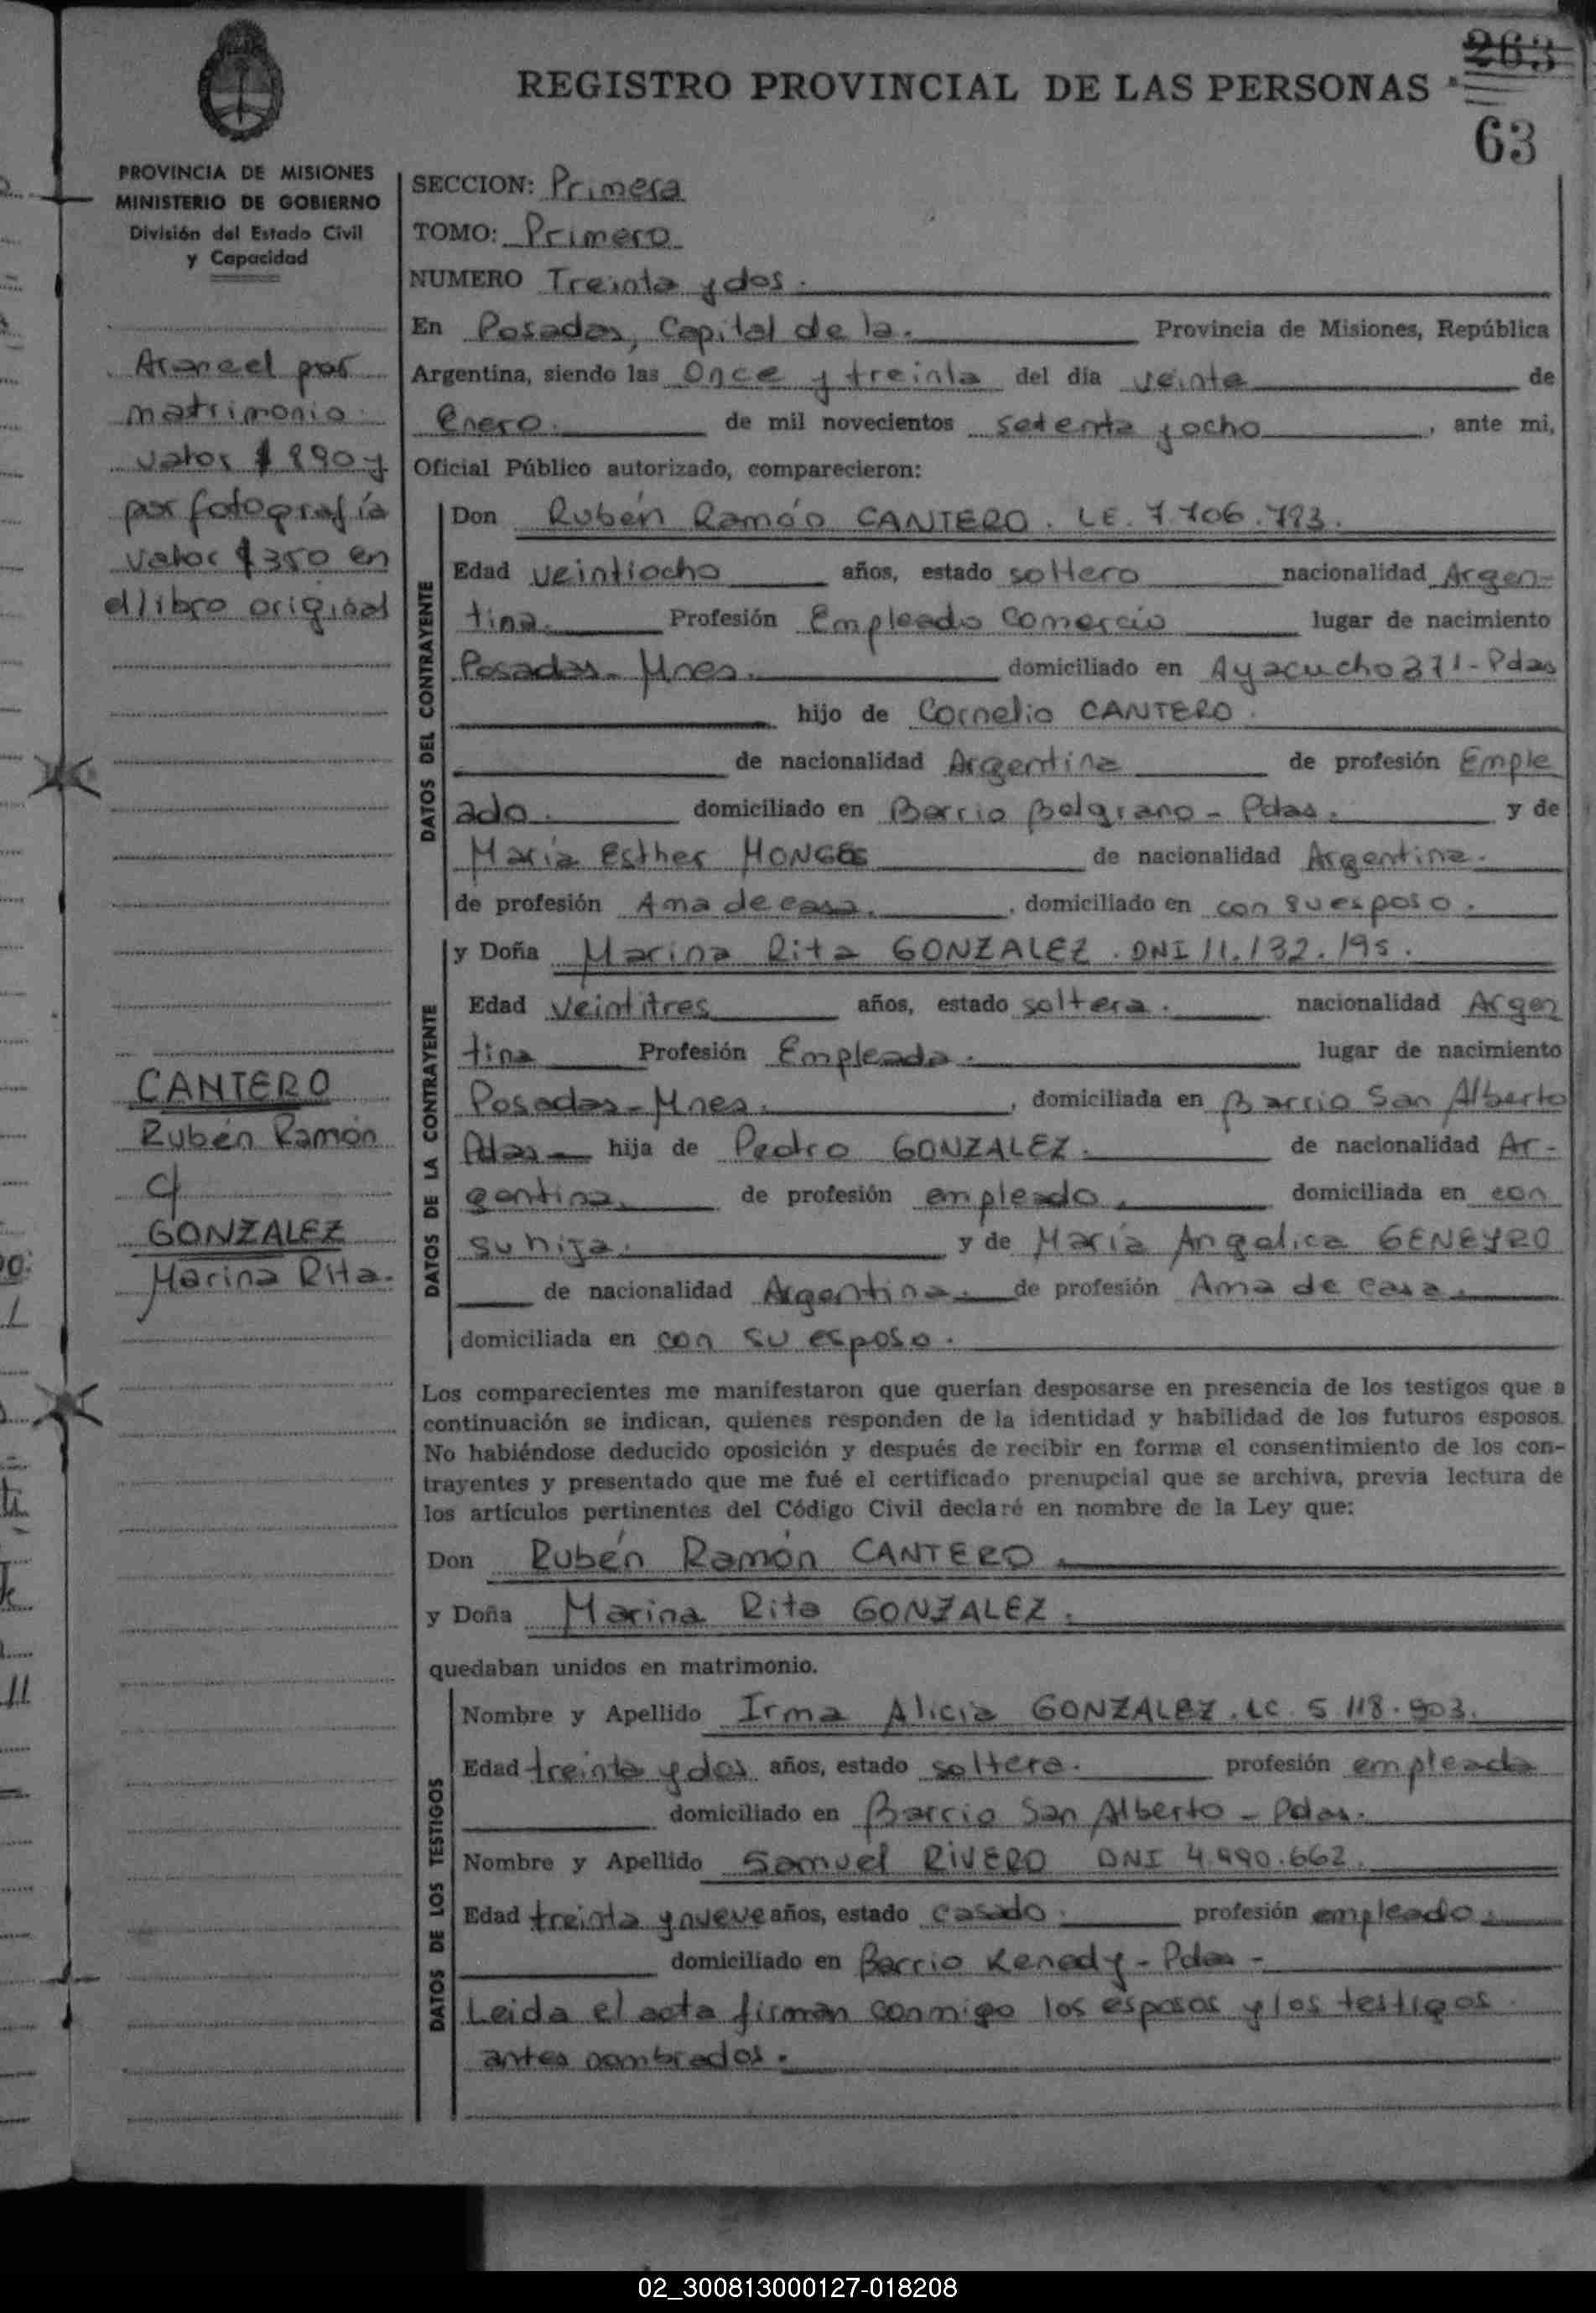 REGISTRO PROVINCIAL DE LAS PERSONAS
263
63
PROVINCIA DE MISIONES
MINISTERIO DE GOBIERNO
División del Estado Civil
y Capacidad
Arancel por
matrimonio
valor $ 890 y
por fotografía
valor $ 350 en
el libro original
CANTERO
Rubén Ramón
c/
GONZALEZ
Marina Rita.
SECCION: Primera
TOMO: Primero
NUMERO Treinta y dos.
En Posadas, Capital de la. Provincia de Misiones, República
Argentina, siendo las Once y treinta del día veinte de
Enero. de mil novecientos setenta y ocho, ante mi,
Oficial Público autorizado, comparecieron:
DATOS DEL CONTRAYENTE
Don Rubén Ramón CANTERO. LE. 7.706.793.
Edad veintiocho años, estado soltero nacionalidad Argen-
tina. Profesión Empleado Comercio lugar de nacimiento
Posadas-Mnes. domiciliado en Ayacucho 371-Pdas
hijo de Cornelio CANTERO.
de nacionalidad Argentina de profesión Emple
ado. domiciliado en Barrio Belgrano - Pdas. y de
María Esther MONGES de nacionalidad Argentina.
de profesión Ama de casa. , domiciliado en con su esposo.
DATOS DE LA CONTRAYENTE
y Doña Marina Rita GONZALEZ. DNI 11.132.195.
Edad veintitres años, estado soltera. nacionalidad Argen
tina Profesión Empleada. lugar de nacimiento
Posadas-Mnes. , domiciliada en Barrio San Alberto
Pdas- hija de Pedro GONZALEZ. de nacionalidad Ar-
gentina. de profesión empleado. domiciliada en con
su hija. y de María Angelica GENEYRO
de nacionalidad Argentina. de profesión Ama de casa.
domiciliada en con su esposo.
Los comparecientes me manifestaron que querían desposarse en presencia de los testigos que a
continuación se indican, quienes responden de la identidad y habilidad de los futuros esposos.
No habiéndose deducido oposición y después de recibir en forma el consentimiento de los con-
trayentes y presentado que me fué el certificado prenupcial que se archiva, previa lectura de
los artículos pertinentes del Código Civil declaré en nombre de la Ley que:
Don Rubén Ramón CANTERO.
y Doña Marina Rita GONZALEZ.
quedaban unidos en matrimonio.
DATOS DE LOS TESTIGOS
Nombre y Apellido Irma Alicia GONZALEZ. LC. 5 118.903.
Edad treinta y dos años, estado soltera. profesión empleada
domiciliado en Barrio San Alberto - Pdas.
Nombre y Apellido Samuel RIVERO DNI 4.990.662.
Edad treinta y nueve años, estado casado. profesión empleado.
domiciliado en Barrio Kenedy - Pdas -
Leida el acta firman conmigo los esposos y los testigos
antes nombrados.
02_300813000127-018208